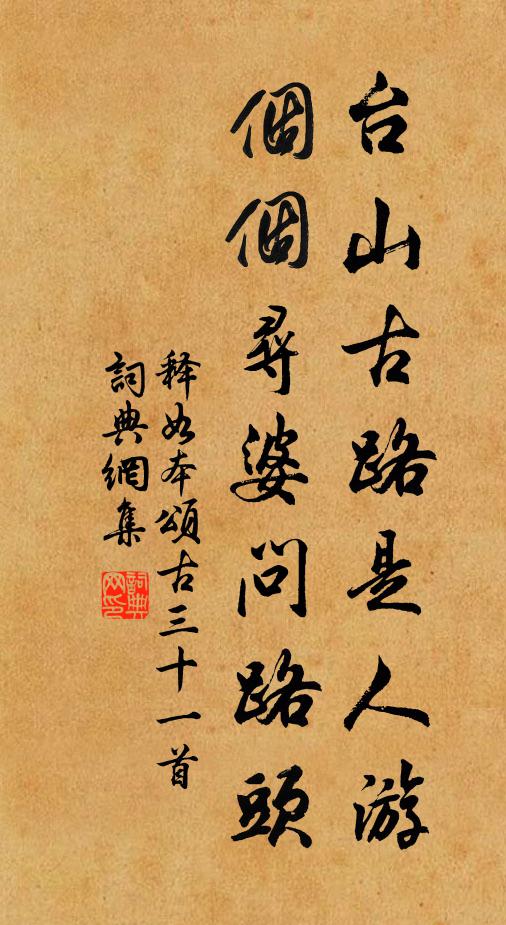 台山古路是人游
個個尋婆問路頭
释如本頌古三十一首
詞典網集
詞典网印